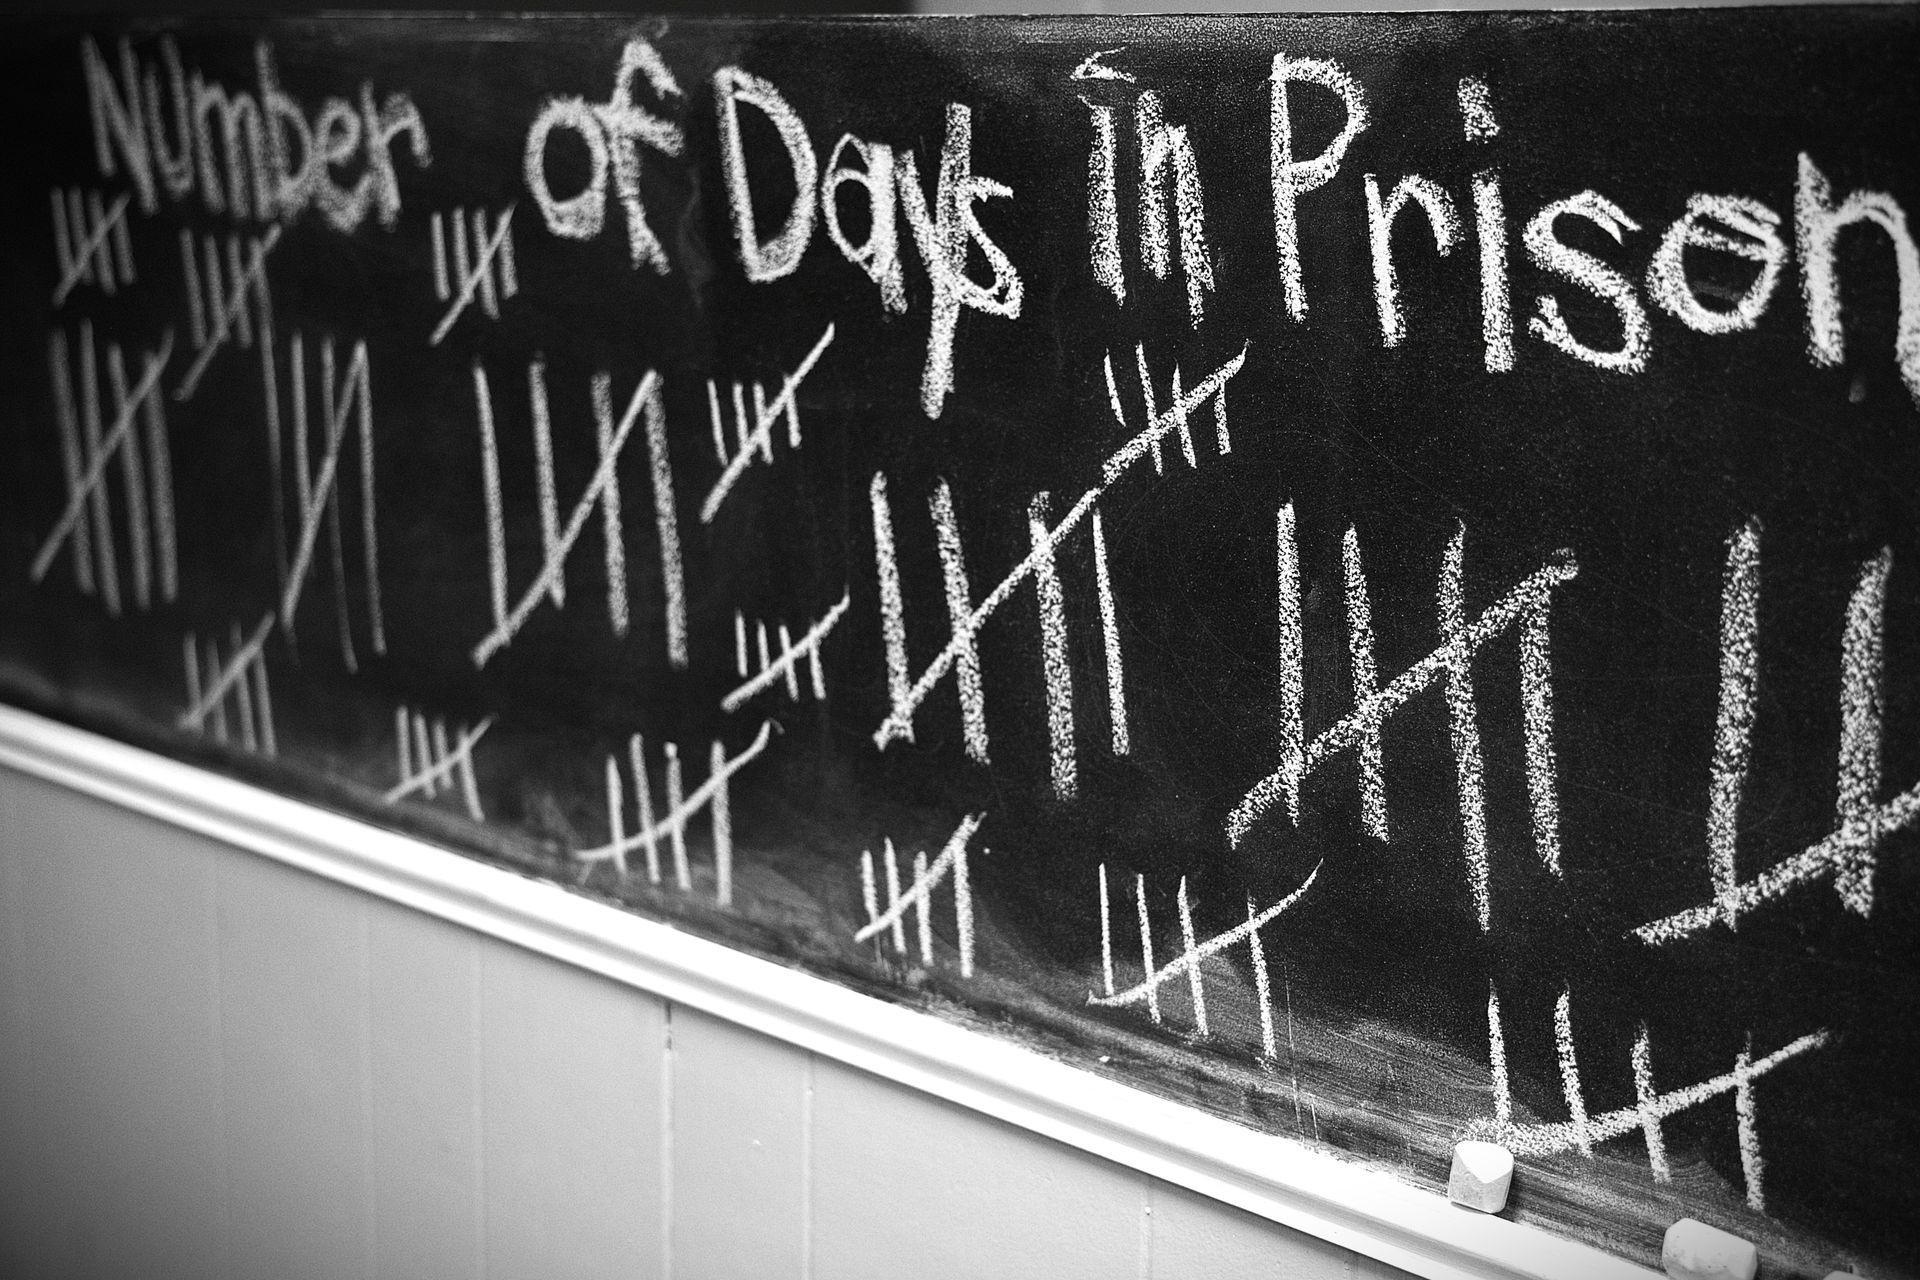 Number of Days in Prison